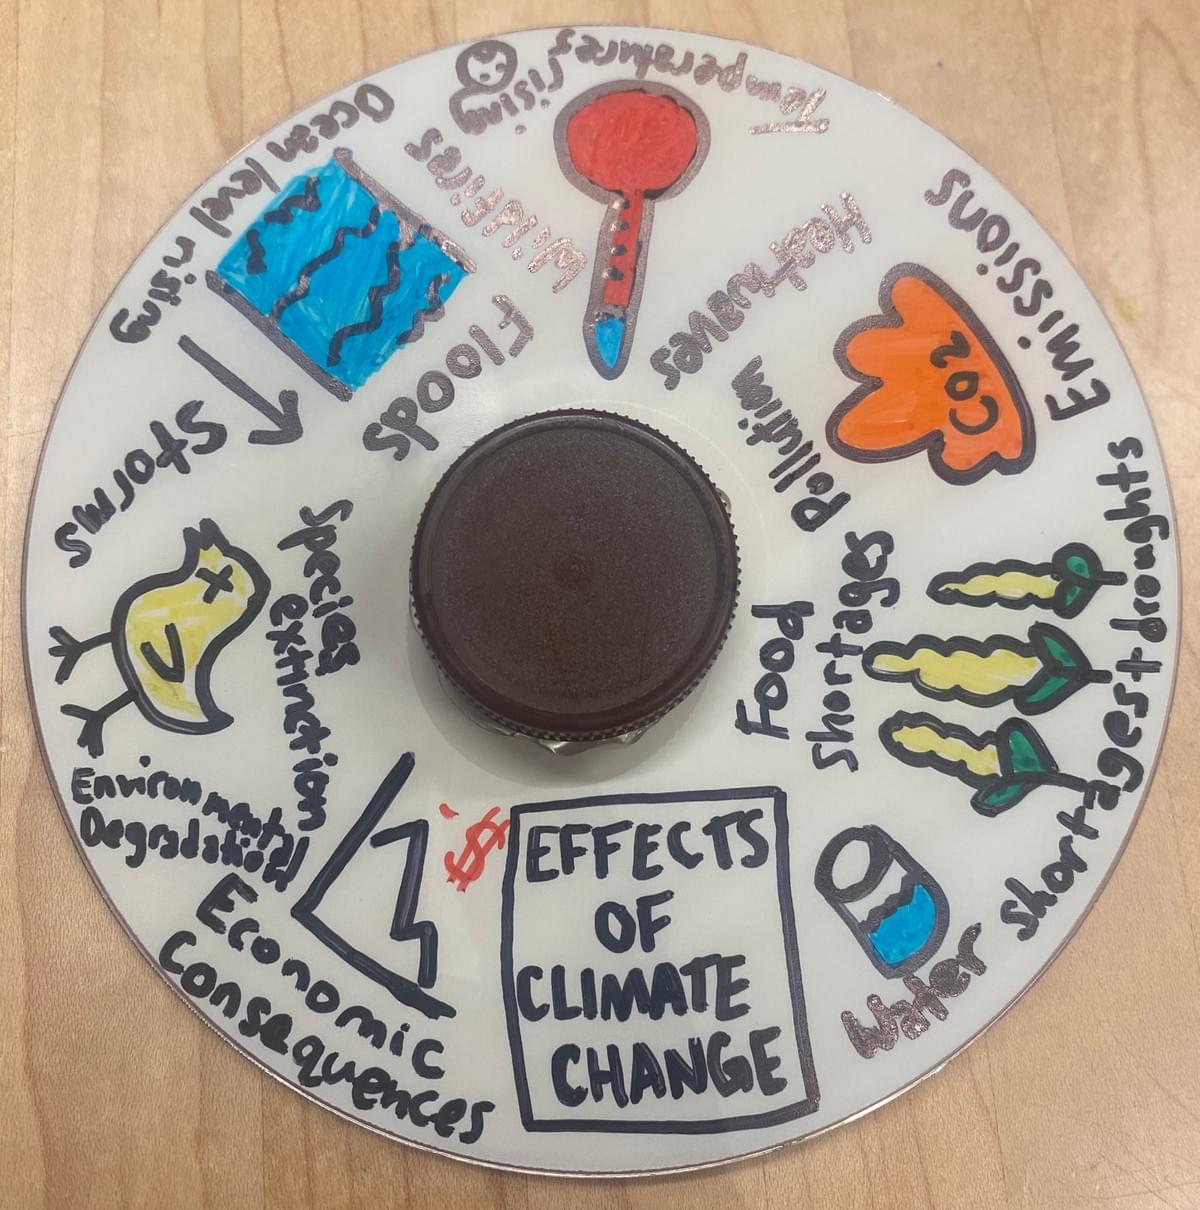 EFFECTS
OF
CLIMATE
CHANGE
$
Economic
Consequences
Environmental
Degradation
Species
extinction
Storms
Ocean level rising
Floods
Wildfires
Temperatures rising
Heatwaves
Emissions
CO2
Pollution
Food
shortages
Water shortagest droughts